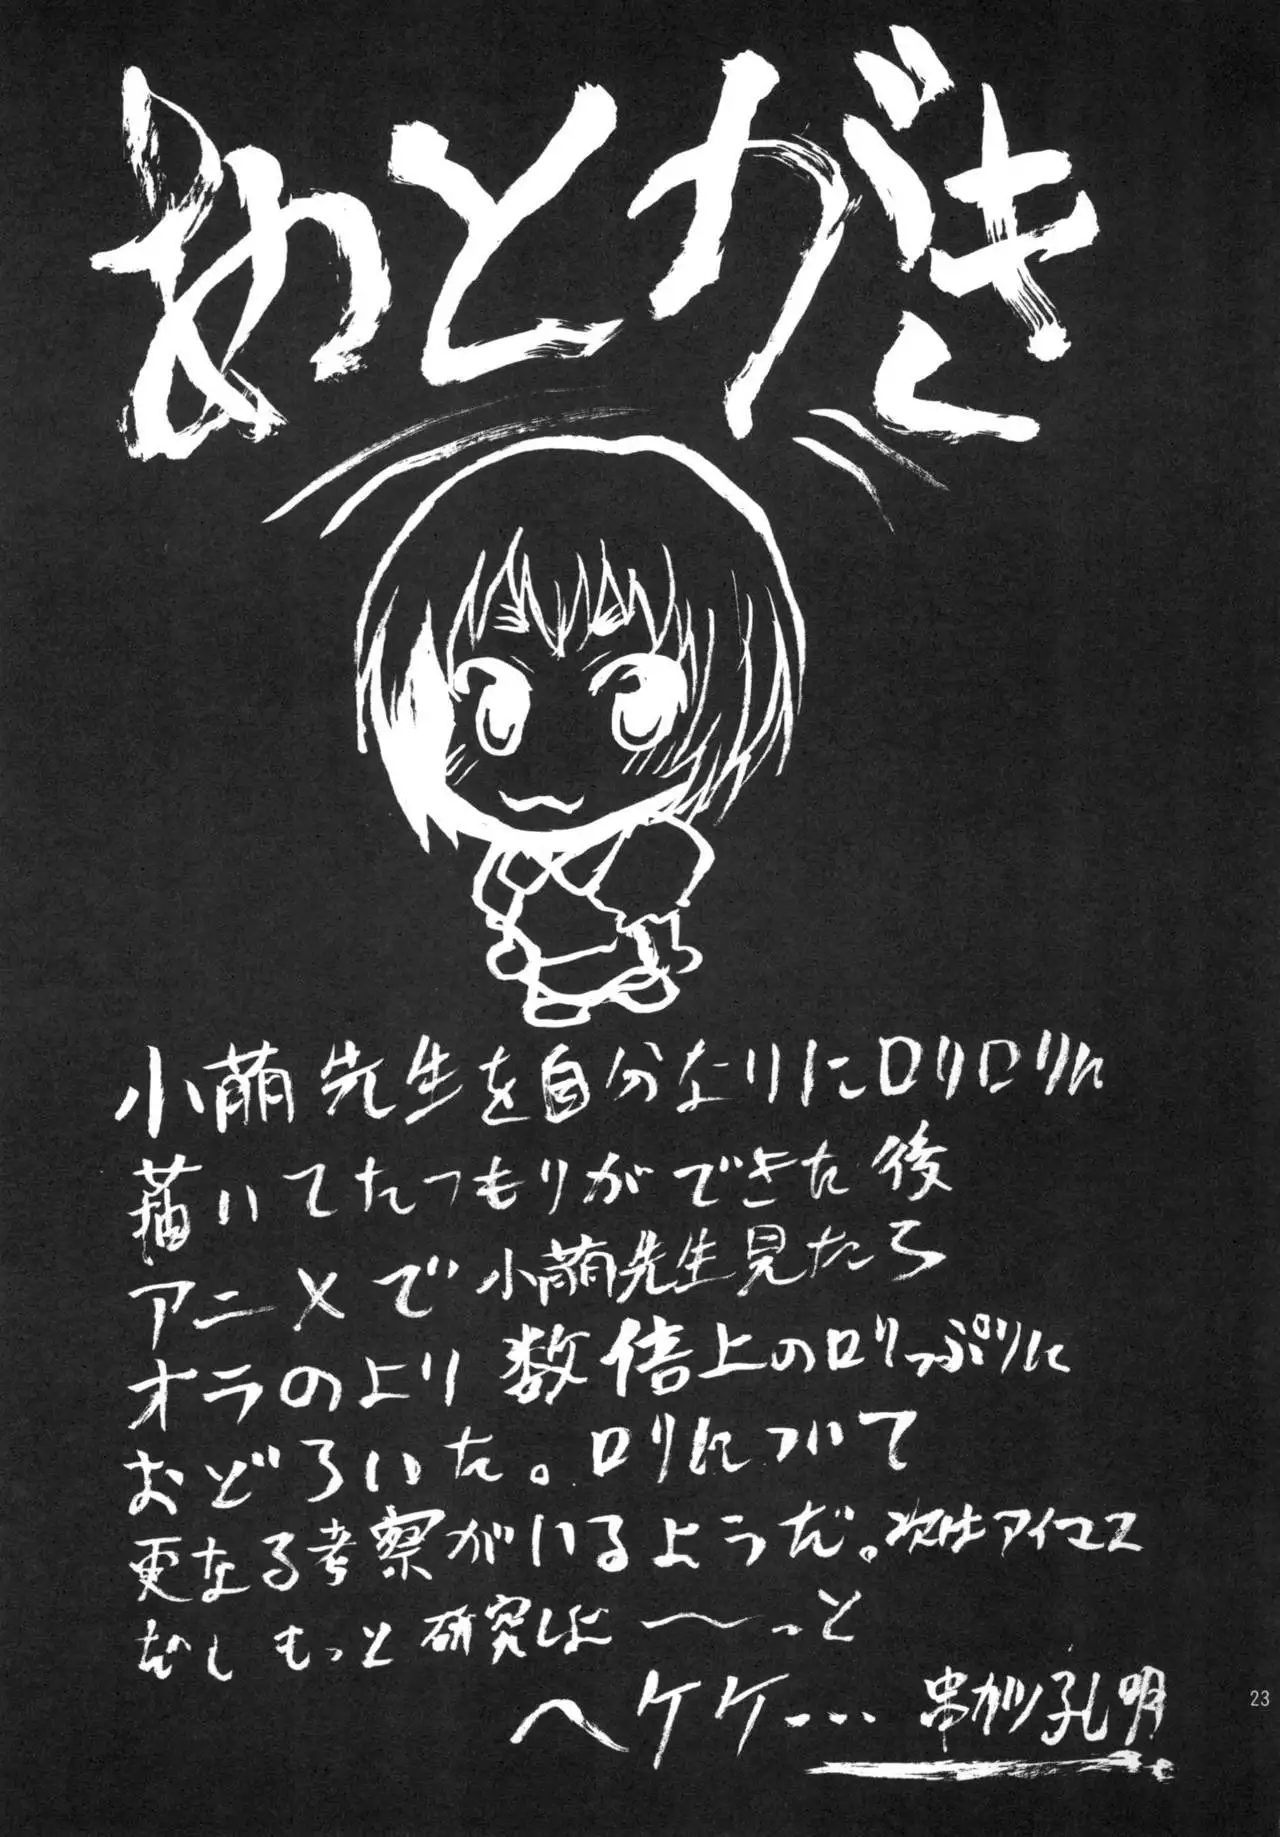 あとがき
小萌先生を自分なりにロリロリに
描いてたつもりができた後
アニメで小萌先生見たら
オラのより数倍上のロリっぷりに
おどろいた。ロリについて
更なる考察がいるようだ。次はアイマス
だし もっと研究しよ〜〜っと
ヘケケー… 串カツ孔明
23